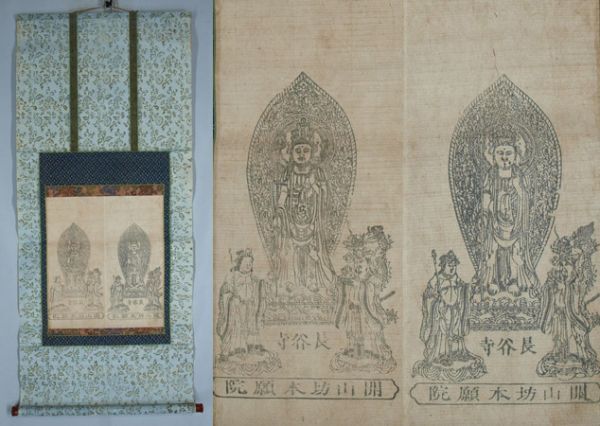 長谷寺
開山坊本願院
長谷寺
開山坊本願院